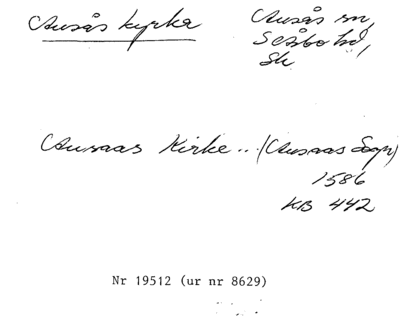 Ausås kyrka
Ausås sn,
S Åsbo hd,
Sk
Ausaas Kirke .. (Ausaas Sogn)
1586
KB 442
Nr 19512 (ur nr 8629)